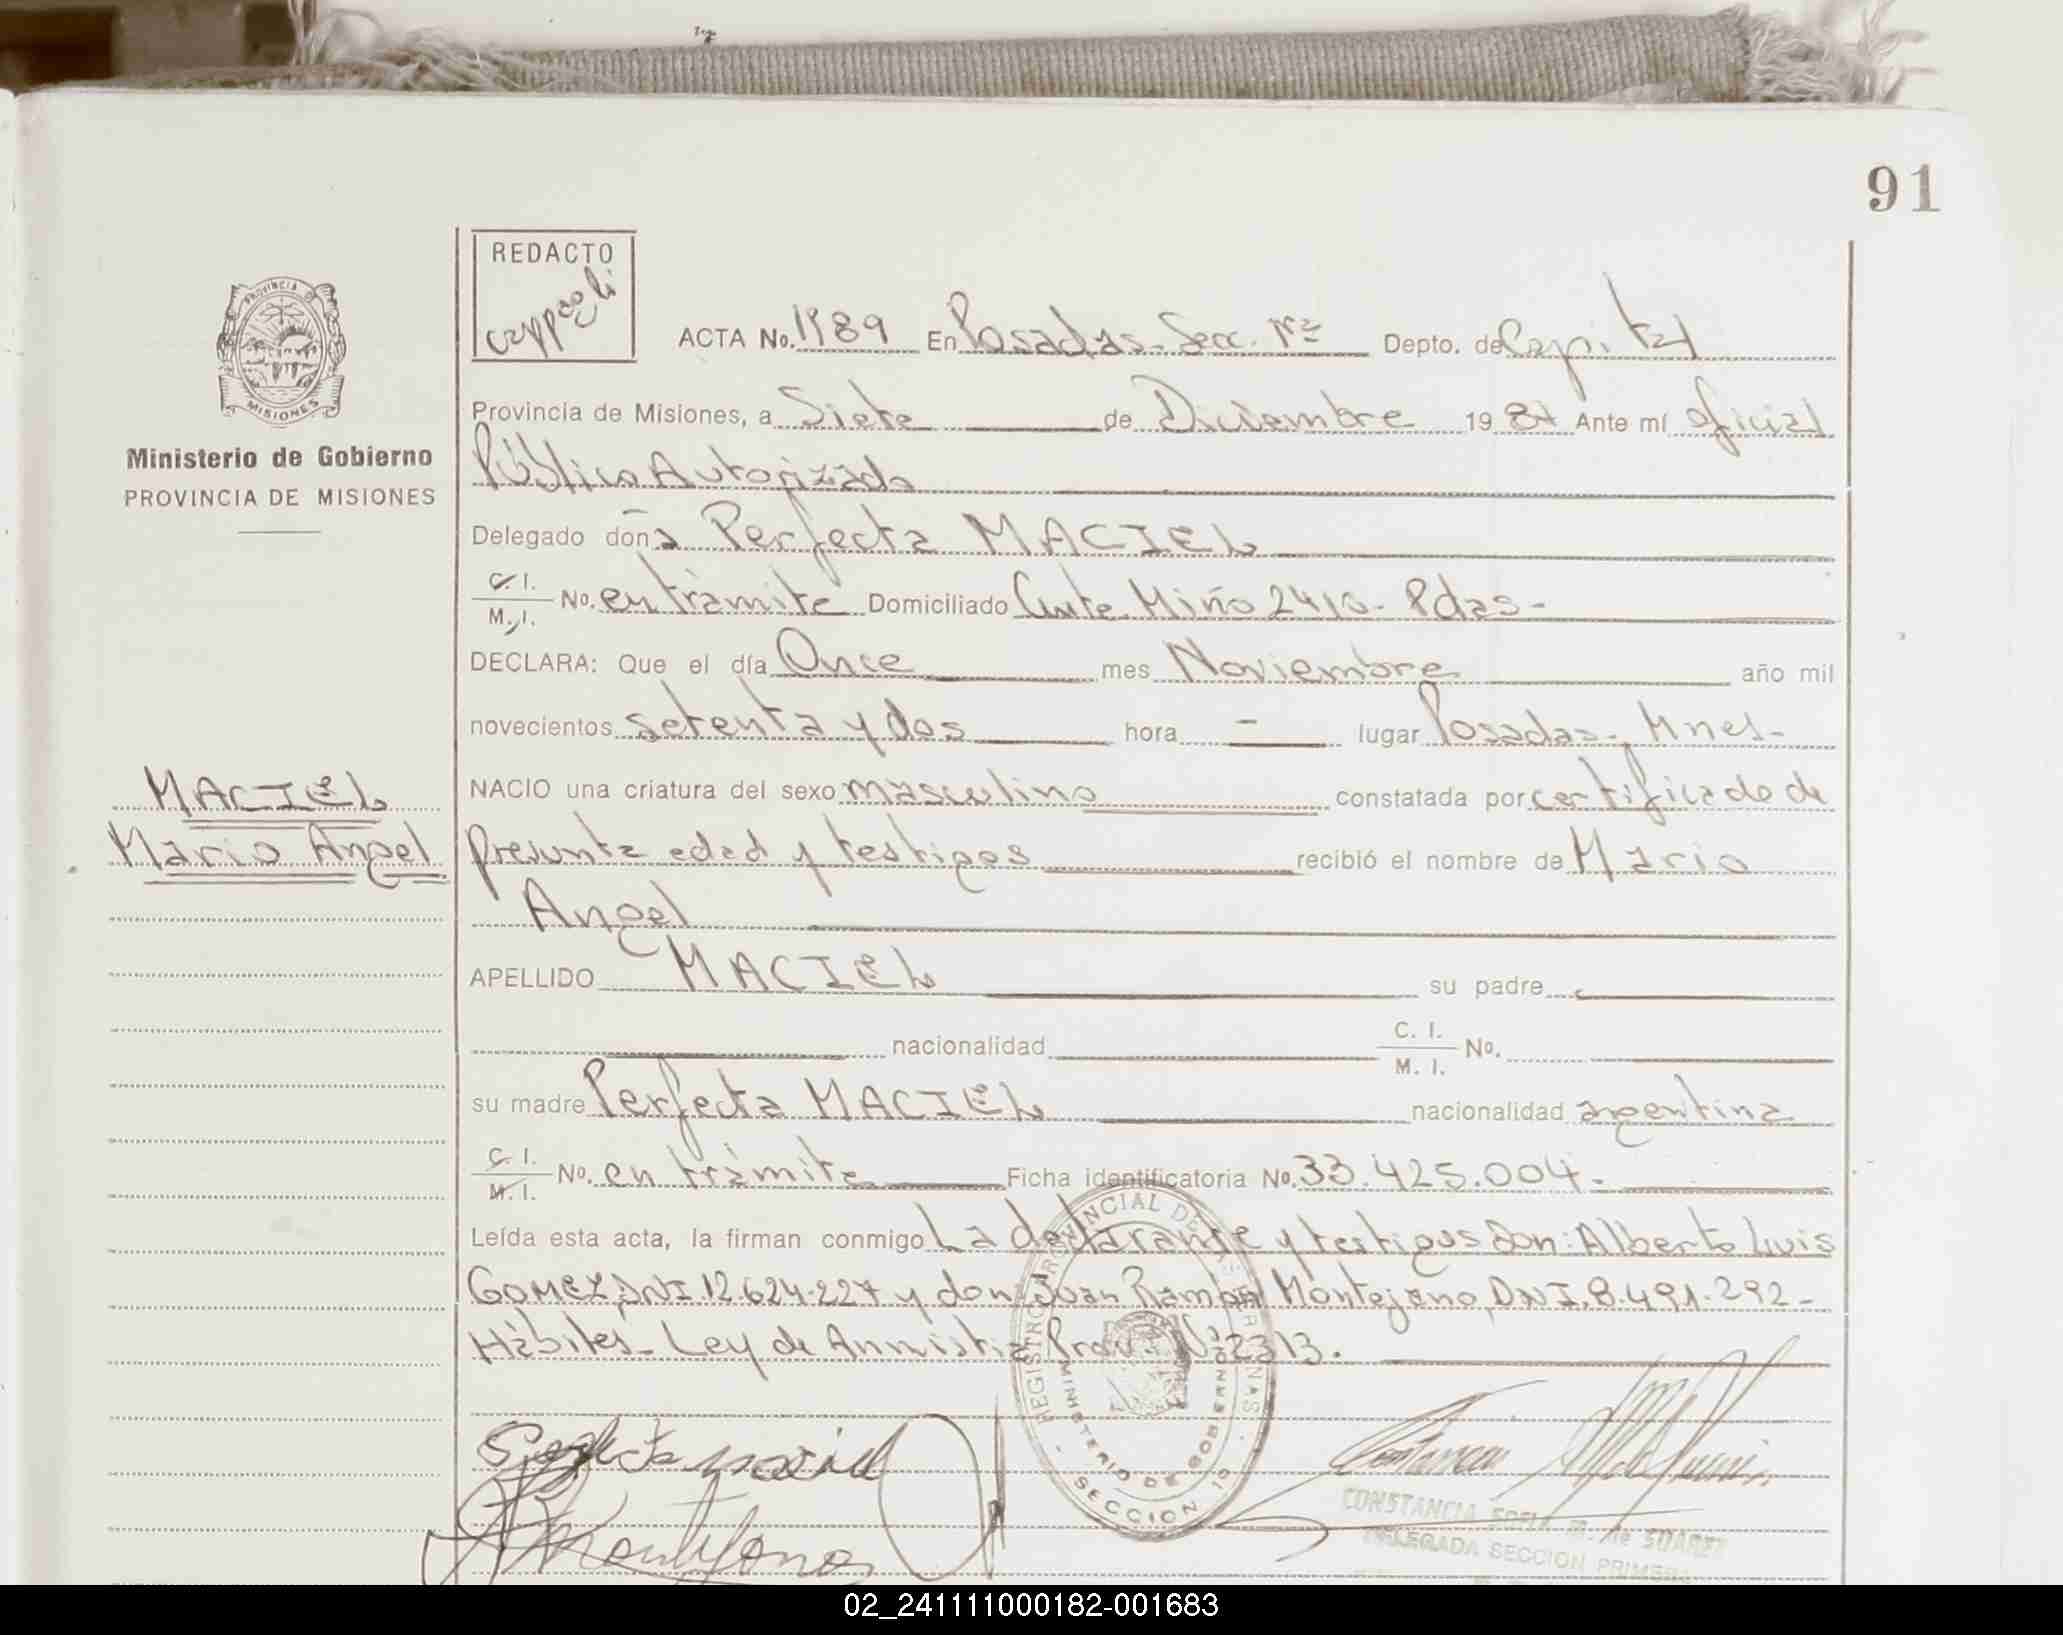 91
REDACTO
cappagli
ACTA No. 1989 En Posadas-Secc. 1ra Depto. de Capital
PROVINCIA DE MISIONES
Ministerio de Gobierno
PROVINCIA DE MISIONES
Provincia de Misiones, a Siete de Diciembre 1987 Ante mí Oficial
Público Autorizado
Delegado doña Perfecta MACIEL
C. I. M. I. No. en trámite Domiciliado Cnte. Miño 2410- Pdas-
DECLARA: Que el día Once mes Noviembre año mil
novecientos setenta y dos hora - lugar Posadas-, Mnes-
NACIO una criatura del sexo masculino constatada por certificado de
presunta edad y testigos recibió el nombre de Mario
Angel
MACIEL
Mario Angel
APELLIDO MACIEL su padre
nacionalidad C. I. M. I. No.
su madre Perfecta MACIEL nacionalidad argentina
C. I. M. I. No. en trámite Ficha identificatoria No. 33.425.004.-
Leída esta acta, la firman conmigo La declarante y testigos Don: Alberto Luis
GOMEZ, DNI. 12.624.227 y don: Juan Ramón Montejano, DNI. 8.491.292-
Hábiles- Ley de Amnistia Prov. No 2313.
REGISTRO PROVINCIAL DE LAS PERSONAS
MINISTERIO DE GOBIERNO
SECCION 1a
Perfecta maciel
CONSTANCIA SOFIA M. de SUAREZ
DELEGADA SECCION PRIMERA
02_241111000182-001683